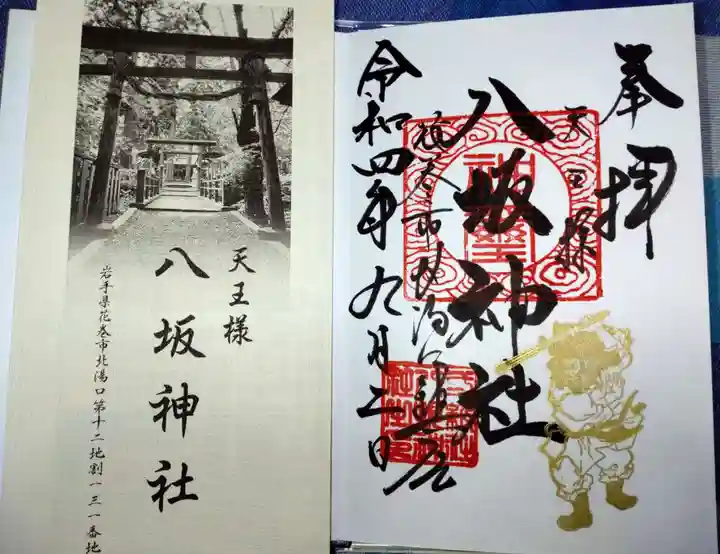 天王様
八坂神社
岩手県花巻市北湯口第十二地割一三一番地
奉拝
天王様
八坂神社
花巻市北湯口鎮座
令和四年九月二日